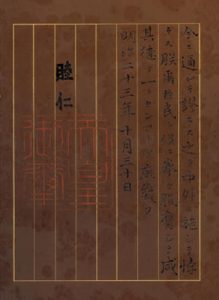 今ニ通シテ謬ラス之ヲ中外ニ施シテ悖
ラス朕爾臣民ト俱ニ拳々服膺シテ咸
其德ヲ一ニセンコトヲ庶幾フ
明治二十三年十月三十日
睦仁
天皇
御璽